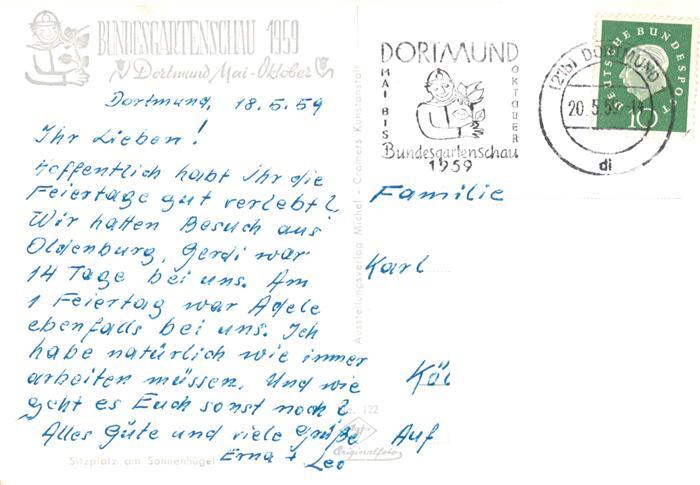 BUNDESGARTENSCHAU 1959
Dortmund Mai-Oktober
Dortmund, 18.5.59
Ihr Lieben!
Hoffentlich habt ihr die
Feiertage gut verlebt?
Wir hatten Besuch aus
Oldenburg, Gerdi war
14 Tage bei uns. Am
1 Feiertag war Adele
ebenfalls bei uns. Ich
habe natürlich wie immer
arbeiten müssen. Und wie
geht es Euch sonst noch?
Alles Gute und viele Grüße
Erna + Leo
Sitzplatz am Sonnenhügel
Ausstellungsverlag Michel - Cramers Kunstanstalt
122
Originalfoto
DORTMUND
MAI BIS
OKTOBER
Bundesgartenschau
1959
(21b) DORTMUND
20.5.59
di
DEUTSCHE BUNDESPOST
10
Familie
Karl
Auf